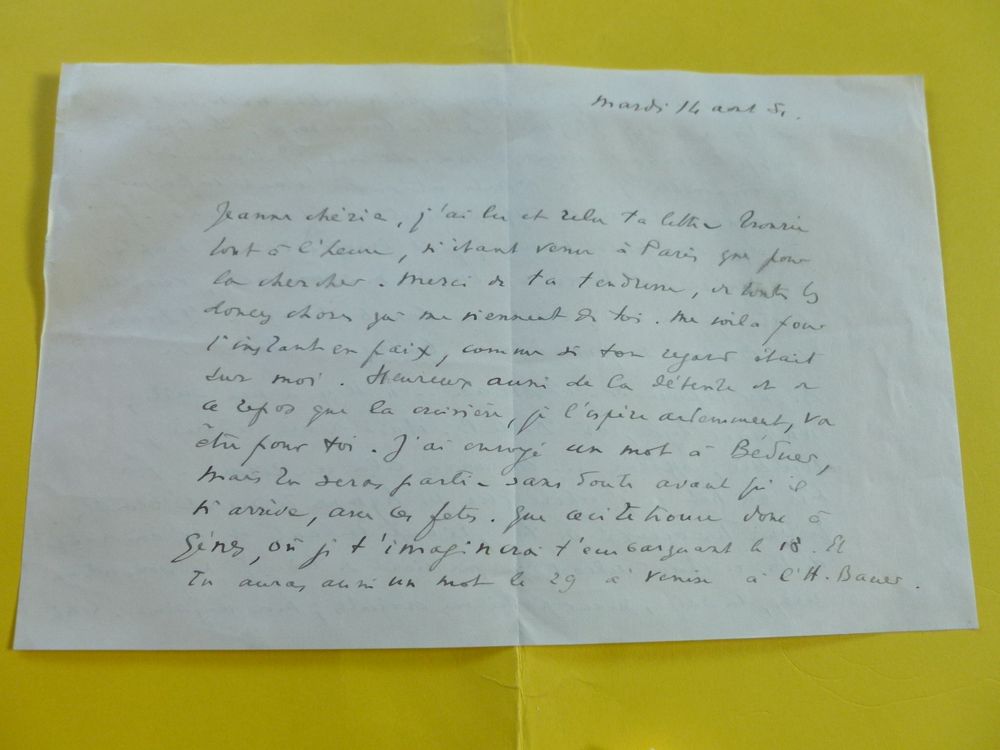 mardi 14 aout 51.
Jeanne chérie, j'ai lu et relu ta lettre trouvée
tout à l'heure, n'étant venu à Paris que pour
la chercher. Merci de ta tendresse, de toutes les
douces choses qui me viennent de toi. Me voilà pour
l'instant en paix, comme si ton regard était
sur moi. Heureux aussi de la détente et de
ce repos que la croisière, je l'espère ardemment, va
être pour toi. J'ai envoyé un mot à Béduer,
mais tu seras partie sans doute avant qu'il
n'arrive, avec ces fetes. Que ceci te trouve donc à
Gênes, où je t'imaginerai t'embarquant le 18. Et
tu auras aussi un mot le 29 à Venise à l'H. Bauer.